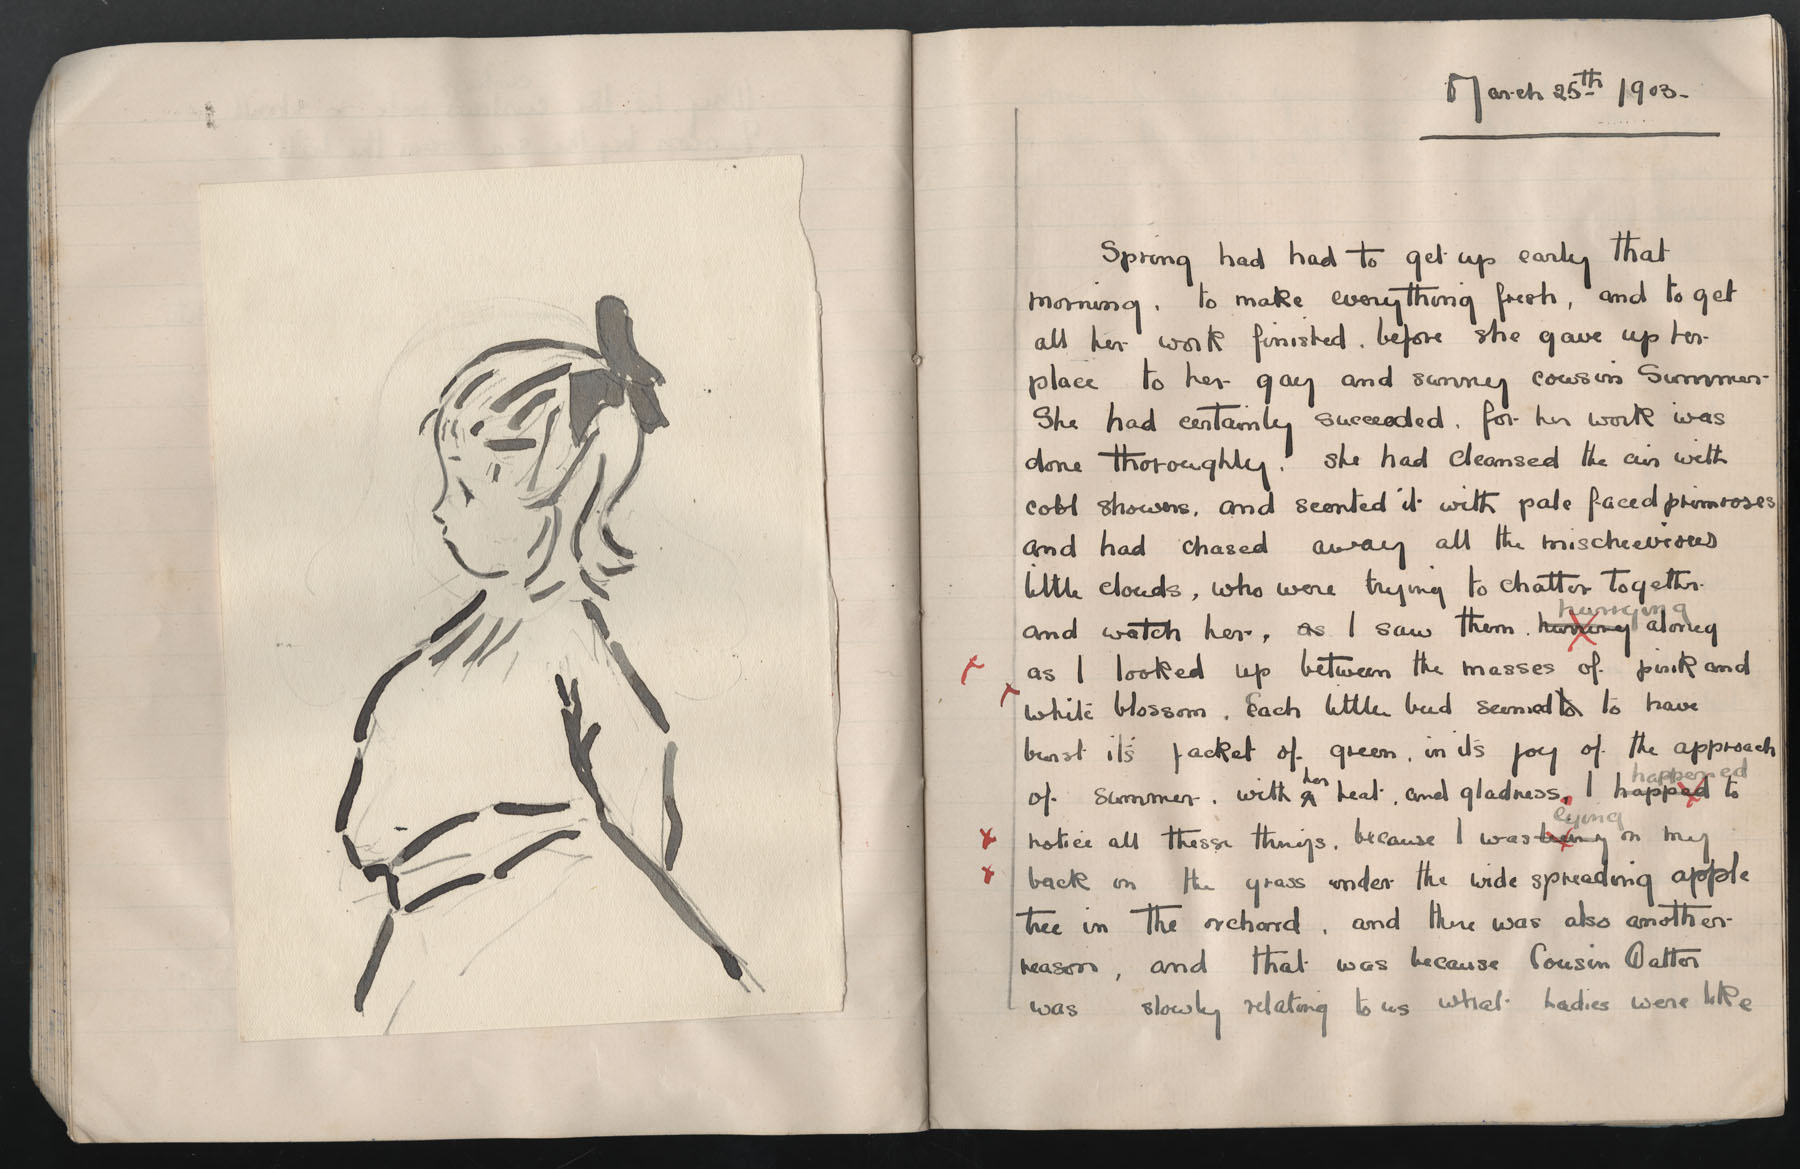 March 25th 1903.
Spring had had to get up early that
morning, to make everything fresh, and to get
all her work finished, before she gave up her
place to her gay and sunney cousin Summer
She had certainly succeeded, for her work was
done thoroughly. She had cleansed the air with
cool showers, and scented it with pale faced primroses
and had chased away all the mischeevious
little clouds, who were trying to chatter together
hurrying
and watch her, as I saw them along
as I looked up between the masses of pink and
white blossom. Each little bud seemed to have
burst it's jacket of green, in it's joy of the approach
happened
of summer, with her heat, and gladness, I happed to
lying
notice all these things, because I was on my
back in the grass under the wide spreading apple
tree in the orchard, and there was also another
reason, and that was because Cousin
was slowly relating to us what Ladies were like